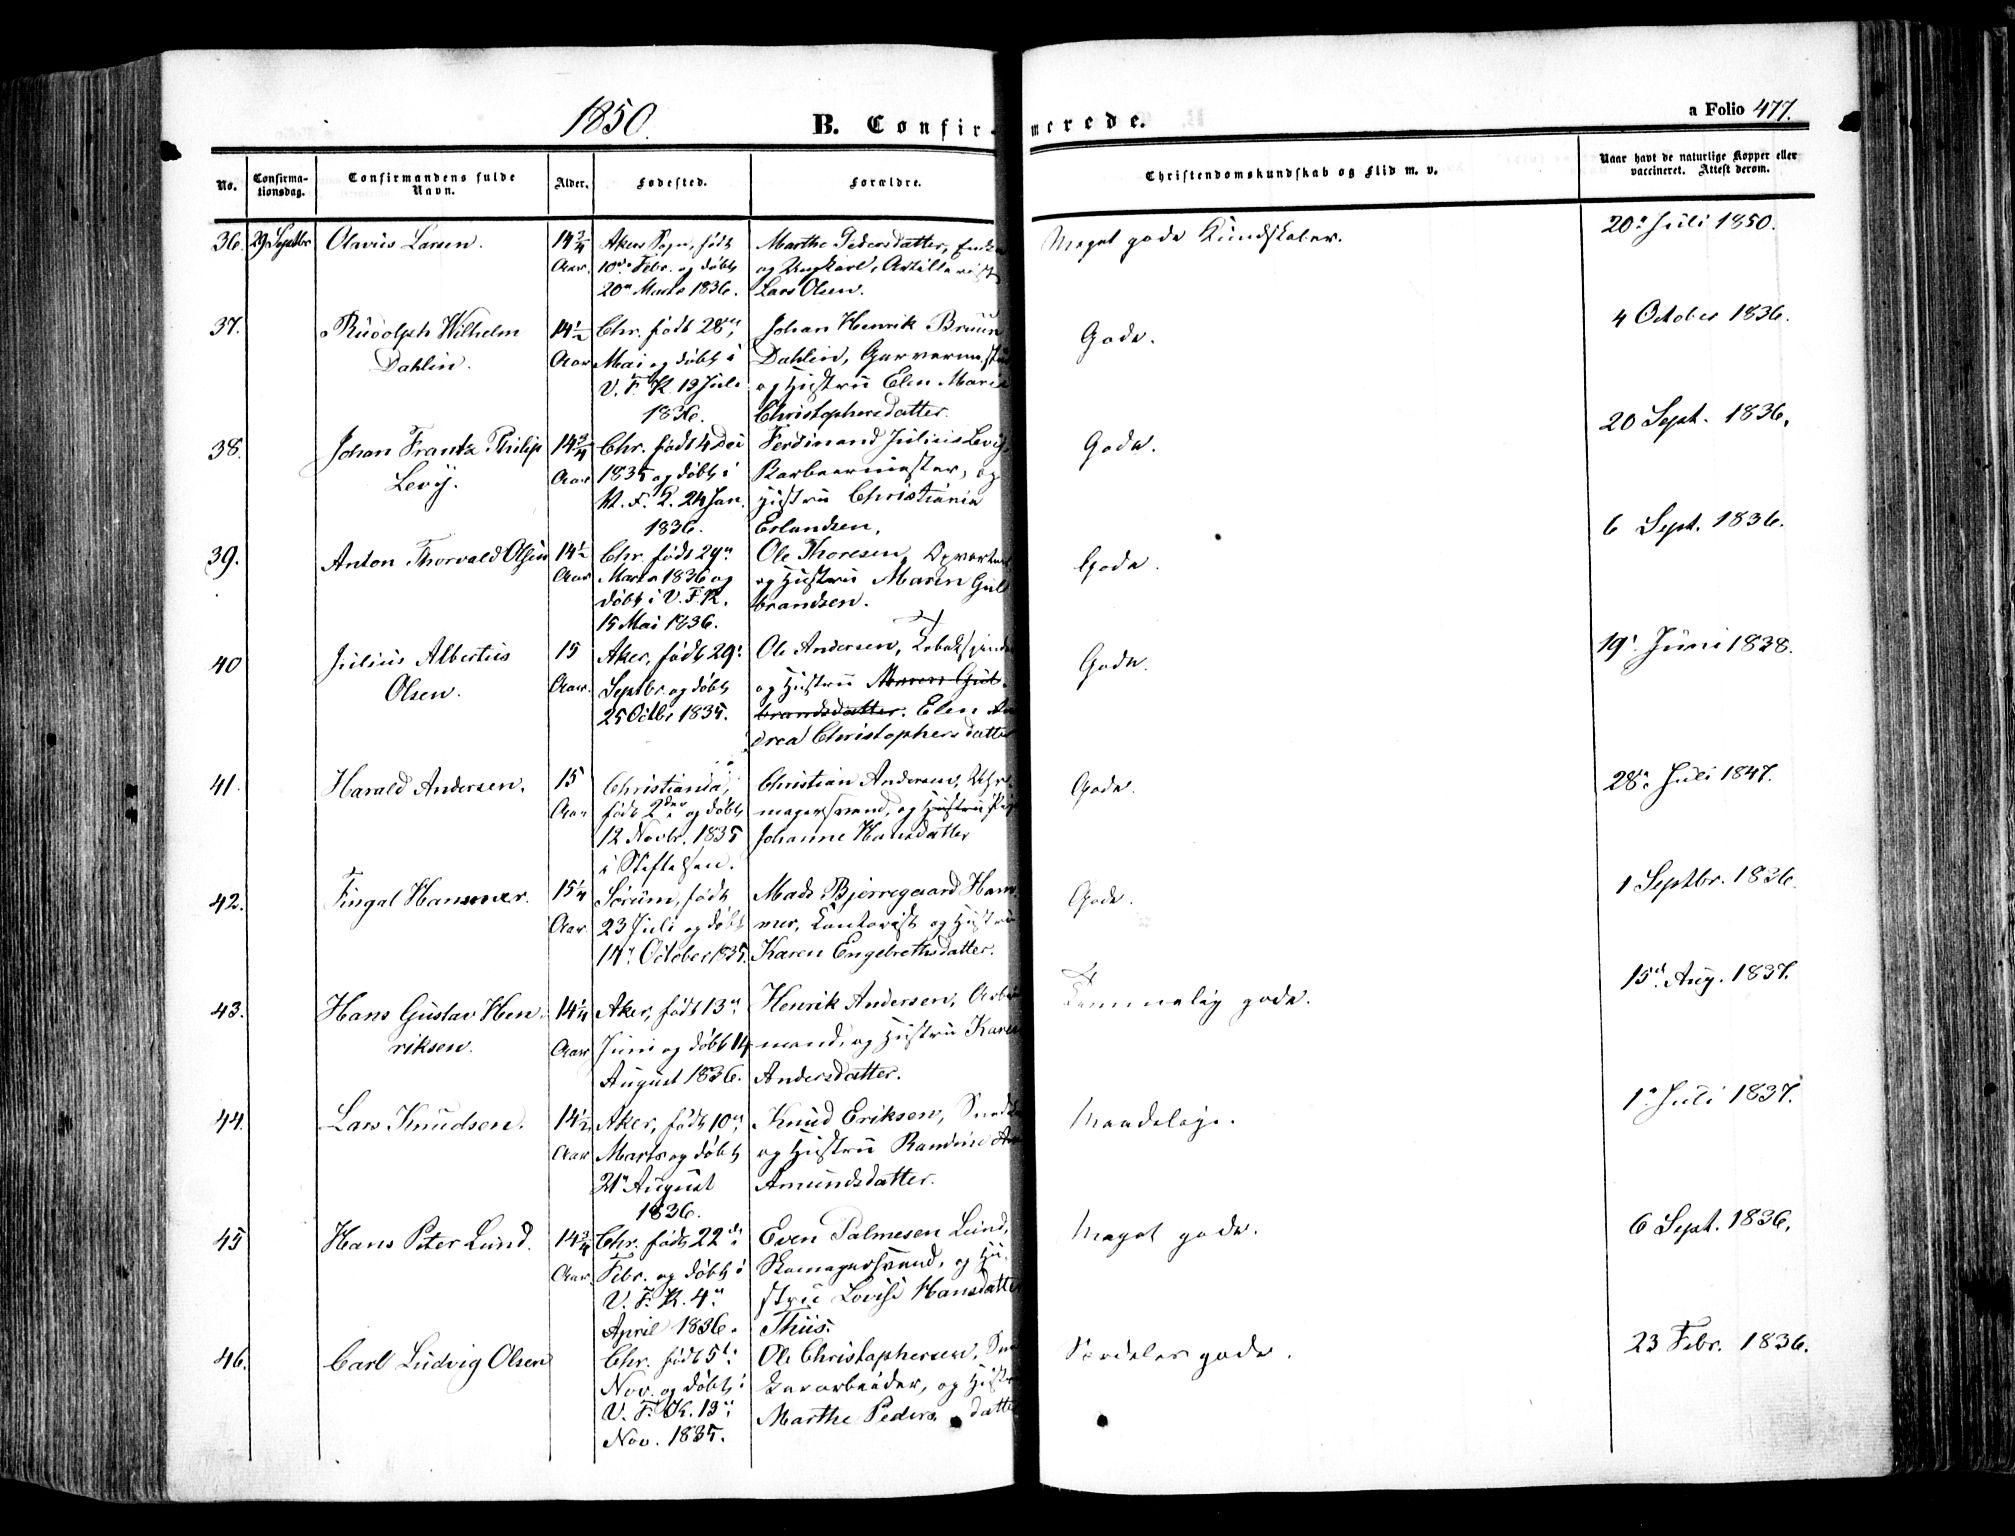 1850.
B. Confirmerede.
a Folio 477.
No.
Confirmationsdag.
Confirmandens fulde Navn.
Alder.
Fødested.
Forældre.
Christendomskundskab og Flid m. v.
Naar havt de naturlige Kopper eller vaccineret. Attest derom.
36. 29 Septbr Olavus Larsen. 14 3/4 Aker Sogn, født Marthe Pedersdatter, Enke Meget gode Kundskaber. 20de Juli 1850.
Aar. 10de Febr. og døbt og Ungkarl, Artillerist
20de Marts 1836. Lars Olsen.
37. Rudolph Wilhelm 14 1/2 Chr. født 28de Johan Henrik Bruun Gode. 4 October 1836.
Dahlin. Aar Mai og døbt i Dahlin, Garvermester
V. F. K. 13 Juli og Hustru Elen Marie
1836. Christophersdatter.
38. Johan Frantz Philip 14 3/4 Chr. født 4 Dec Ferdinand Julius Levy, Gode. 20 Sept. 1836.
Levy. Aar 1835 og døbt i Barbeermester, og
24 Jan. Hustru Christiania
1836. Erlandsen.
39. Anton Thorvald Olsen 14 1/2 Chr. født 29de Ole Thoresen, Opvarter Gode. 6 Sept. 1836.
Aar. Marts 1836 og og Hustru Maren Gul
døbt i V. F. K. brandsen.
15 Mai 1836.
40 Julius Albertus 15 Aker, født 29de Ole Andersen, Gode. 19de Juni 1838.
Olsen. Aar. Septbr. og døbt og Hustru Maren Gul
25 Octbr 1835. brandsdatter. Elen An
drea Christophersdatter
41. Harald Andersen. 15 Christiania, Christian Andersen, Uhr Gode. 28de Juli 1847.
Aar født 2den og døbt magersvend, og Hustru
12 Novbr. 1835 Johanne Hansdatter
i Stiftelsen.
42. Fingal Hammer. 15 1/4 Sørum, født Mads Bjerregaard Ham Gode. 1 Septbr. 1836.
Aar. 23 Juli og døbt mer, Contorist og Hustru
October 1835. Karen Engebrethsdatter.
43. Hans Gustav Hen 14 1/4 Aker, født 13de Henrik Andersen, Arbeids Temmelig gode. 15de Aug. 1837.
riksen. Aar Juni og døbt 14 mand, og Hustru Karen
August 1836. Andersdatter.
44. Lars Knudsen. 14 1/2 Aker, født 10de Knud Eriksen, Snedker Maadelige. 1de Juli 1837.
Aar Marts og døbt og Hustru Randine
21de August Amundsdatter.
1836.
45 Hans Peter Lund. 14 3/4 Chr. født 22de Even Palmesen Lund, Meget gode. 6 Sept. 1836.
Aar. Febr. og døbt i Skomagersvend, og Hu
V. F. K. 4de stru Lovise Hansdatter
April 1836. Thiis.
46. Carl Ludvig Olsen Chr. født 5te Ole Christophersen, Særdeles gode. 23 Febr. 1836.
Nov. og døbt i og Hustru
V. F. K. 13de Marthe Pedersdatter
Nov. 1835.